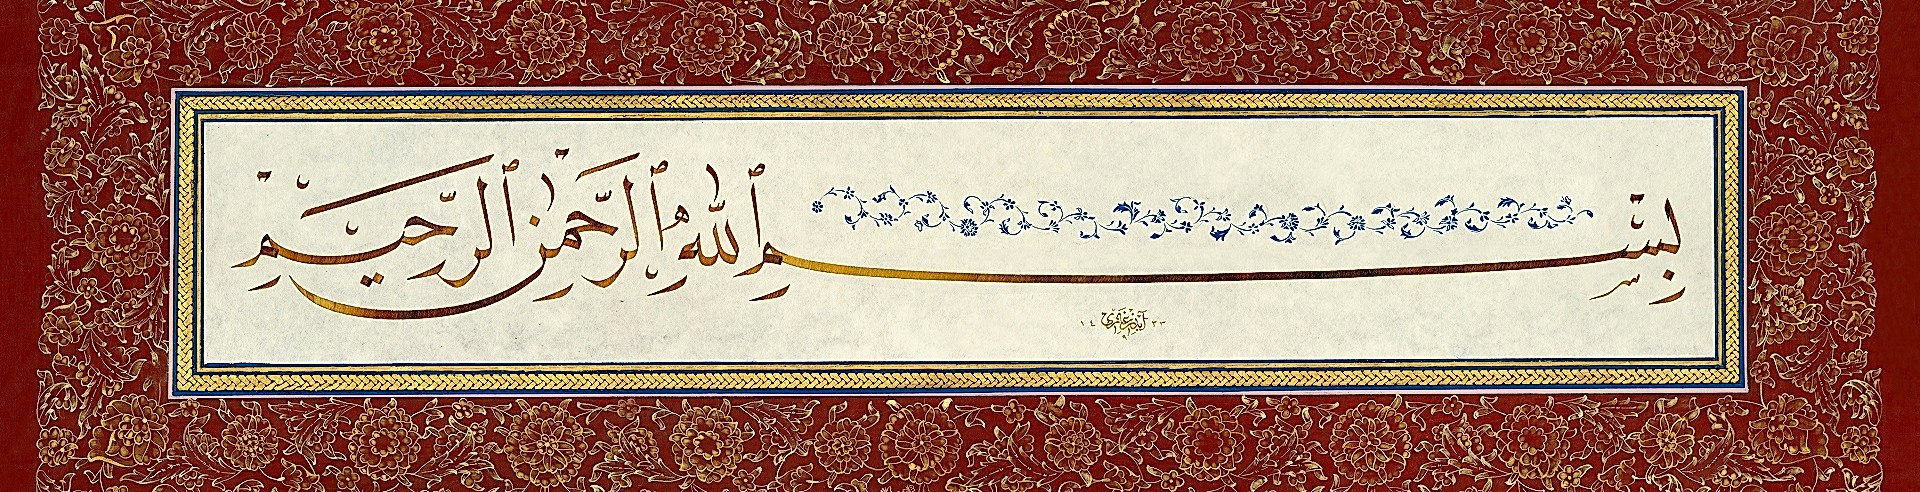 بسم الله الرحمن الرحيم
١٤٣٣